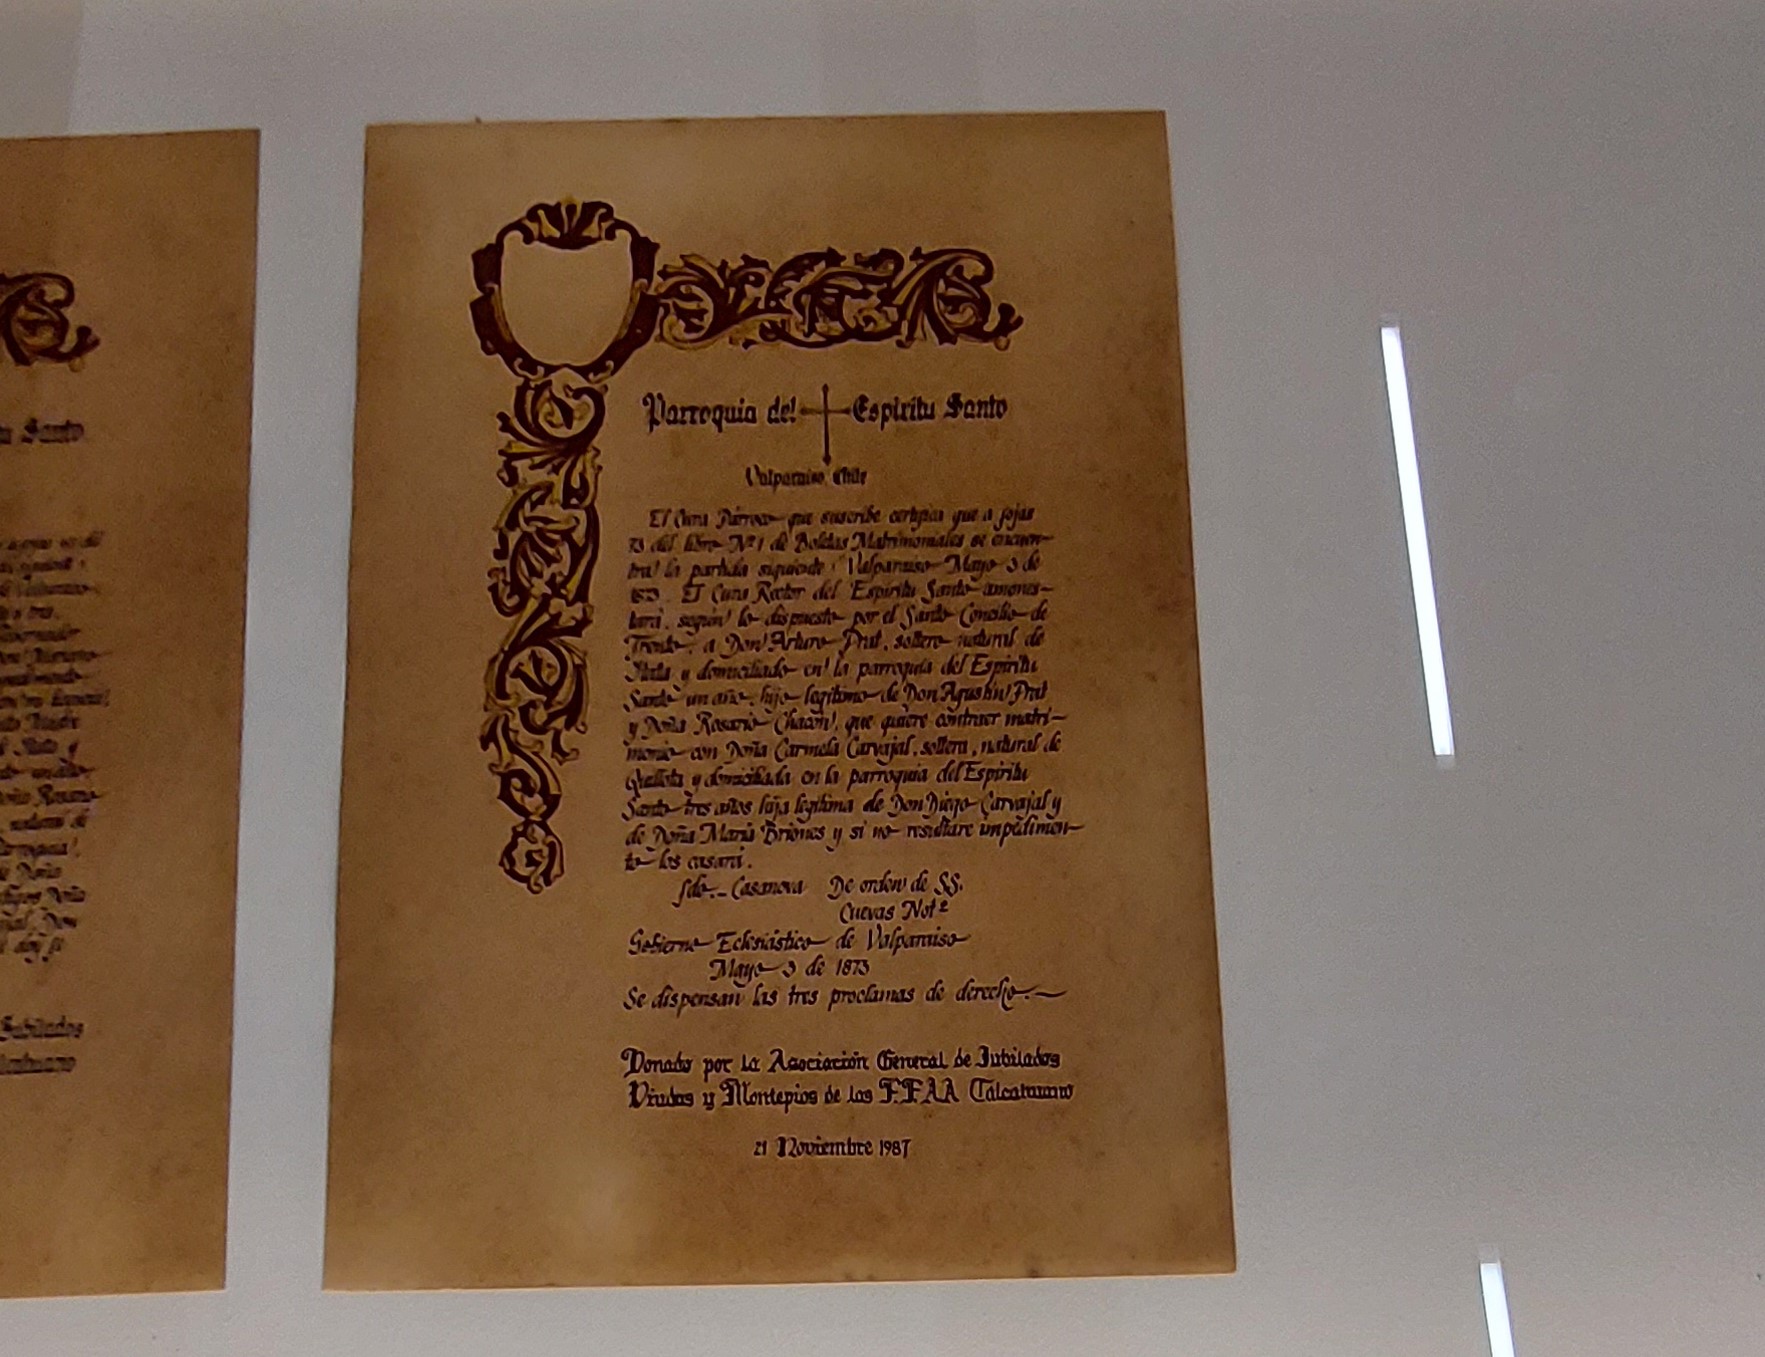 Parroquia del Espiritu Santo
Valparaiso, Chile
El Cura Párroco que suscribe certifica que a fojas
73 del libro Nº 1 de Boletas Matrimoniales se encuen-
tra la partida siguiente: Valparaiso Mayo 3 de
1873. El Cura Rector del Espiritu Santo amones-
tará, según lo dispuesto por el Santo Concilio de
Trento, a Don Arturo Prat, soltero natural de
Itata y domiciliado en la parroquia del Espiritu
Santo un año, hijo legitimo de Don Agustin Prat
y Doña Rosario Chacón, que quiere contraer matri-
monio con Doña Carmela Carvajal, soltera, natural de
Quillota y domiciliada en la parroquia del Espiritu
Santo tres años hija legitima de Don Diego Carvajal y
de Doña Maria Briones y si no resultare impedimen-
to los casará.
fdo.- Casanova De orden de SS.
Cuevas Notº
Gobierno Eclesiástico de Valparaiso
Mayo 3 de 1873
Se dispensan las tres proclamas de derecho.-
Donado por la Asociación General de Jubilados
Viudas y Montepios de las F.F.A.A Talcahuano
21 Noviembre 1987
tu Santo
Doña
Jubilados